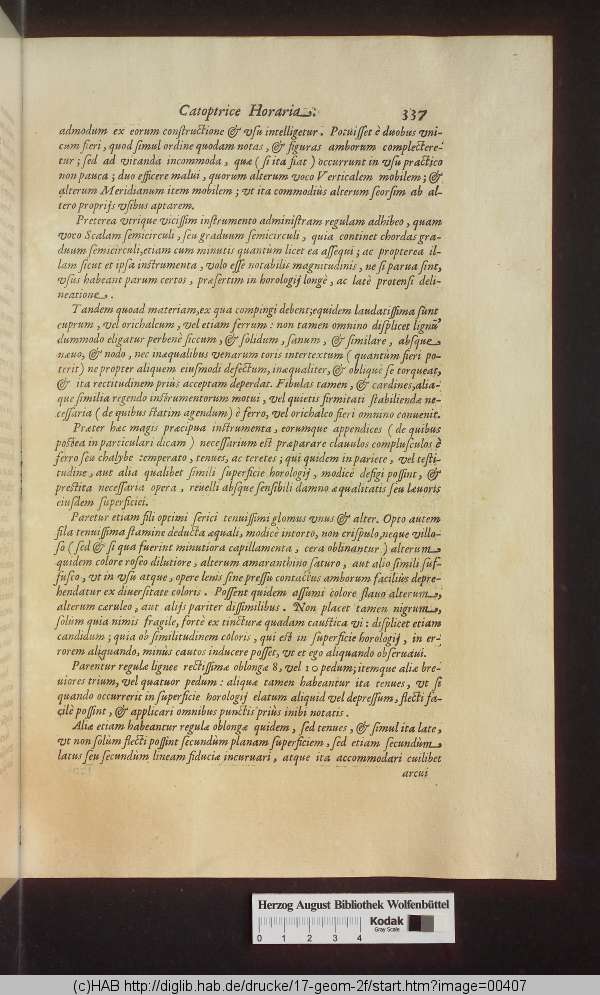 Catoptrice Horaria. 337
admodum ex eorum constructione & vsu intelligetur. Potuisset è duobus vni-
cum fieri, quod simul ordine quodam notas, & figuras amborum complectere-
tur; sed ad vitanda incommoda, quæ (si ita fiat) occurrunt in vsu practico
non pauca; duo efficere malui, quorum alterum voco Verticalem mobilem; &
alterum Meridianum item mobilem; vt ita commodiùs alterum seorsim ab al-
tero proprijs vsibus aptarem.
Preterea vtrique vicissim instrumento administram regulam adhibeo, quam
voco Scalam semicirculi, seu graduum semicirculi, quia continet chordas gra-
duum semicirculi, etiam cum minutis quantùm licet ea assequi; ac propterea il-
lam sicut et ipsa instrumenta, volo esse notabilis magnitudinis, ne si parua sint,
vsus habeant parum certos, præsertim in horologij longè, ac latè protensi deli-
neatione.
Tandem quoad materiam, ex qua compingi debent; equidem laudatissima sunt
cuprum, vel orichalcum, vel etiam ferrum: non tamen omnino displicet lignũ
dummodo eligatur perbenè siccum, & solidum, sanum, & similare, absque
næuo, & nodo, nec inæqualibus venarum toris intertextum (quantum fieri po-
terit) ne propter aliquem eiusmodi defectum, inæqualiter, & obliquè se torqueat,
& ita rectitudinem priùs acceptam deperdat. Fibulas tamen, & cardines, alia-
que similia regendo instrumentorum motui, vel quietis firmitati stabiliendæ ne-
cessaria (de quibus statim agendum) è ferro, vel orichalco fieri omnino conuenit.
Præter hæc magis præcipua instrumenta, eorumque appendices (de quibus
postea in particulari dicam) necessarium est præparare clauulos complusculos è
ferro seu chalybe temperato, tenues, ac teretes; qui quidem in pariete, vel testi-
tudine, aut alia qualibet simili superficie horologij, modicè defigi possint, &
prestita necessaria opera, reuelli absque sensibili damno æqualitatis seu læuoris
eiusdem superficiei.
Paretur etiam fili optimi serici tenuissimi glomus vnus & alter. Opto autem
fila tenuissima stamine deducta æquali, modicè intorto, non crispulo, neque villo-
so (sed & si qua fuerint minutiora capillamenta, cera oblinantur) alterum
quidem colore roseo dilutiore, alterum amaranthino saturo, aut alio simili suf-
fusco, vt in vsu atque, opere lenis sine pressu contactus amborum faciliùs depre-
hendatur ex diuersitate coloris. Possent quidem assumi colore flauo alterum,
alterum cæruleo, aut alijs pariter dissimilibus. Non placet tamen nigrum,
solùm quia nimis fragile, fortè ex tincturæ quadam caustica vi: displicet etiam
candidum; quia ob similitudinem coloris, qui est in superficie horologij, in er-
rorem aliquando, minùs cautos inducere posset, vt et ego aliquando obseruaui.
Parentur regulæ ligneæ rectissimæ oblongæ 8, vel 10 pedum; itemque aliæ bre-
uiores trium, vel quatuor pedum: aliquæ tamen habeantur ita tenues, vt si
quando occurrerit in superficie horologij elatum aliquid vel depressum, flecti fa-
cilè possint, & applicari omnibus punctis priùs inibi notatis.
Aliæ etiam habeantur regulæ oblongæ quidem, sed tenues, & simul ita late,
vt non solùm flecti possint secundùm planam superficiem, sed etiam secundum
latus seu secundùm lineam fiduciæ incuruari, atque ita accommodari cuilibet
arcui
Herzog August Bibliothek Wolfenbüttel
0 1 2 3 4
Kodak
Gray Scale
(c)HAB http://diglib.hab.de/drucke/17-geom-2f/start.htm?image=00407